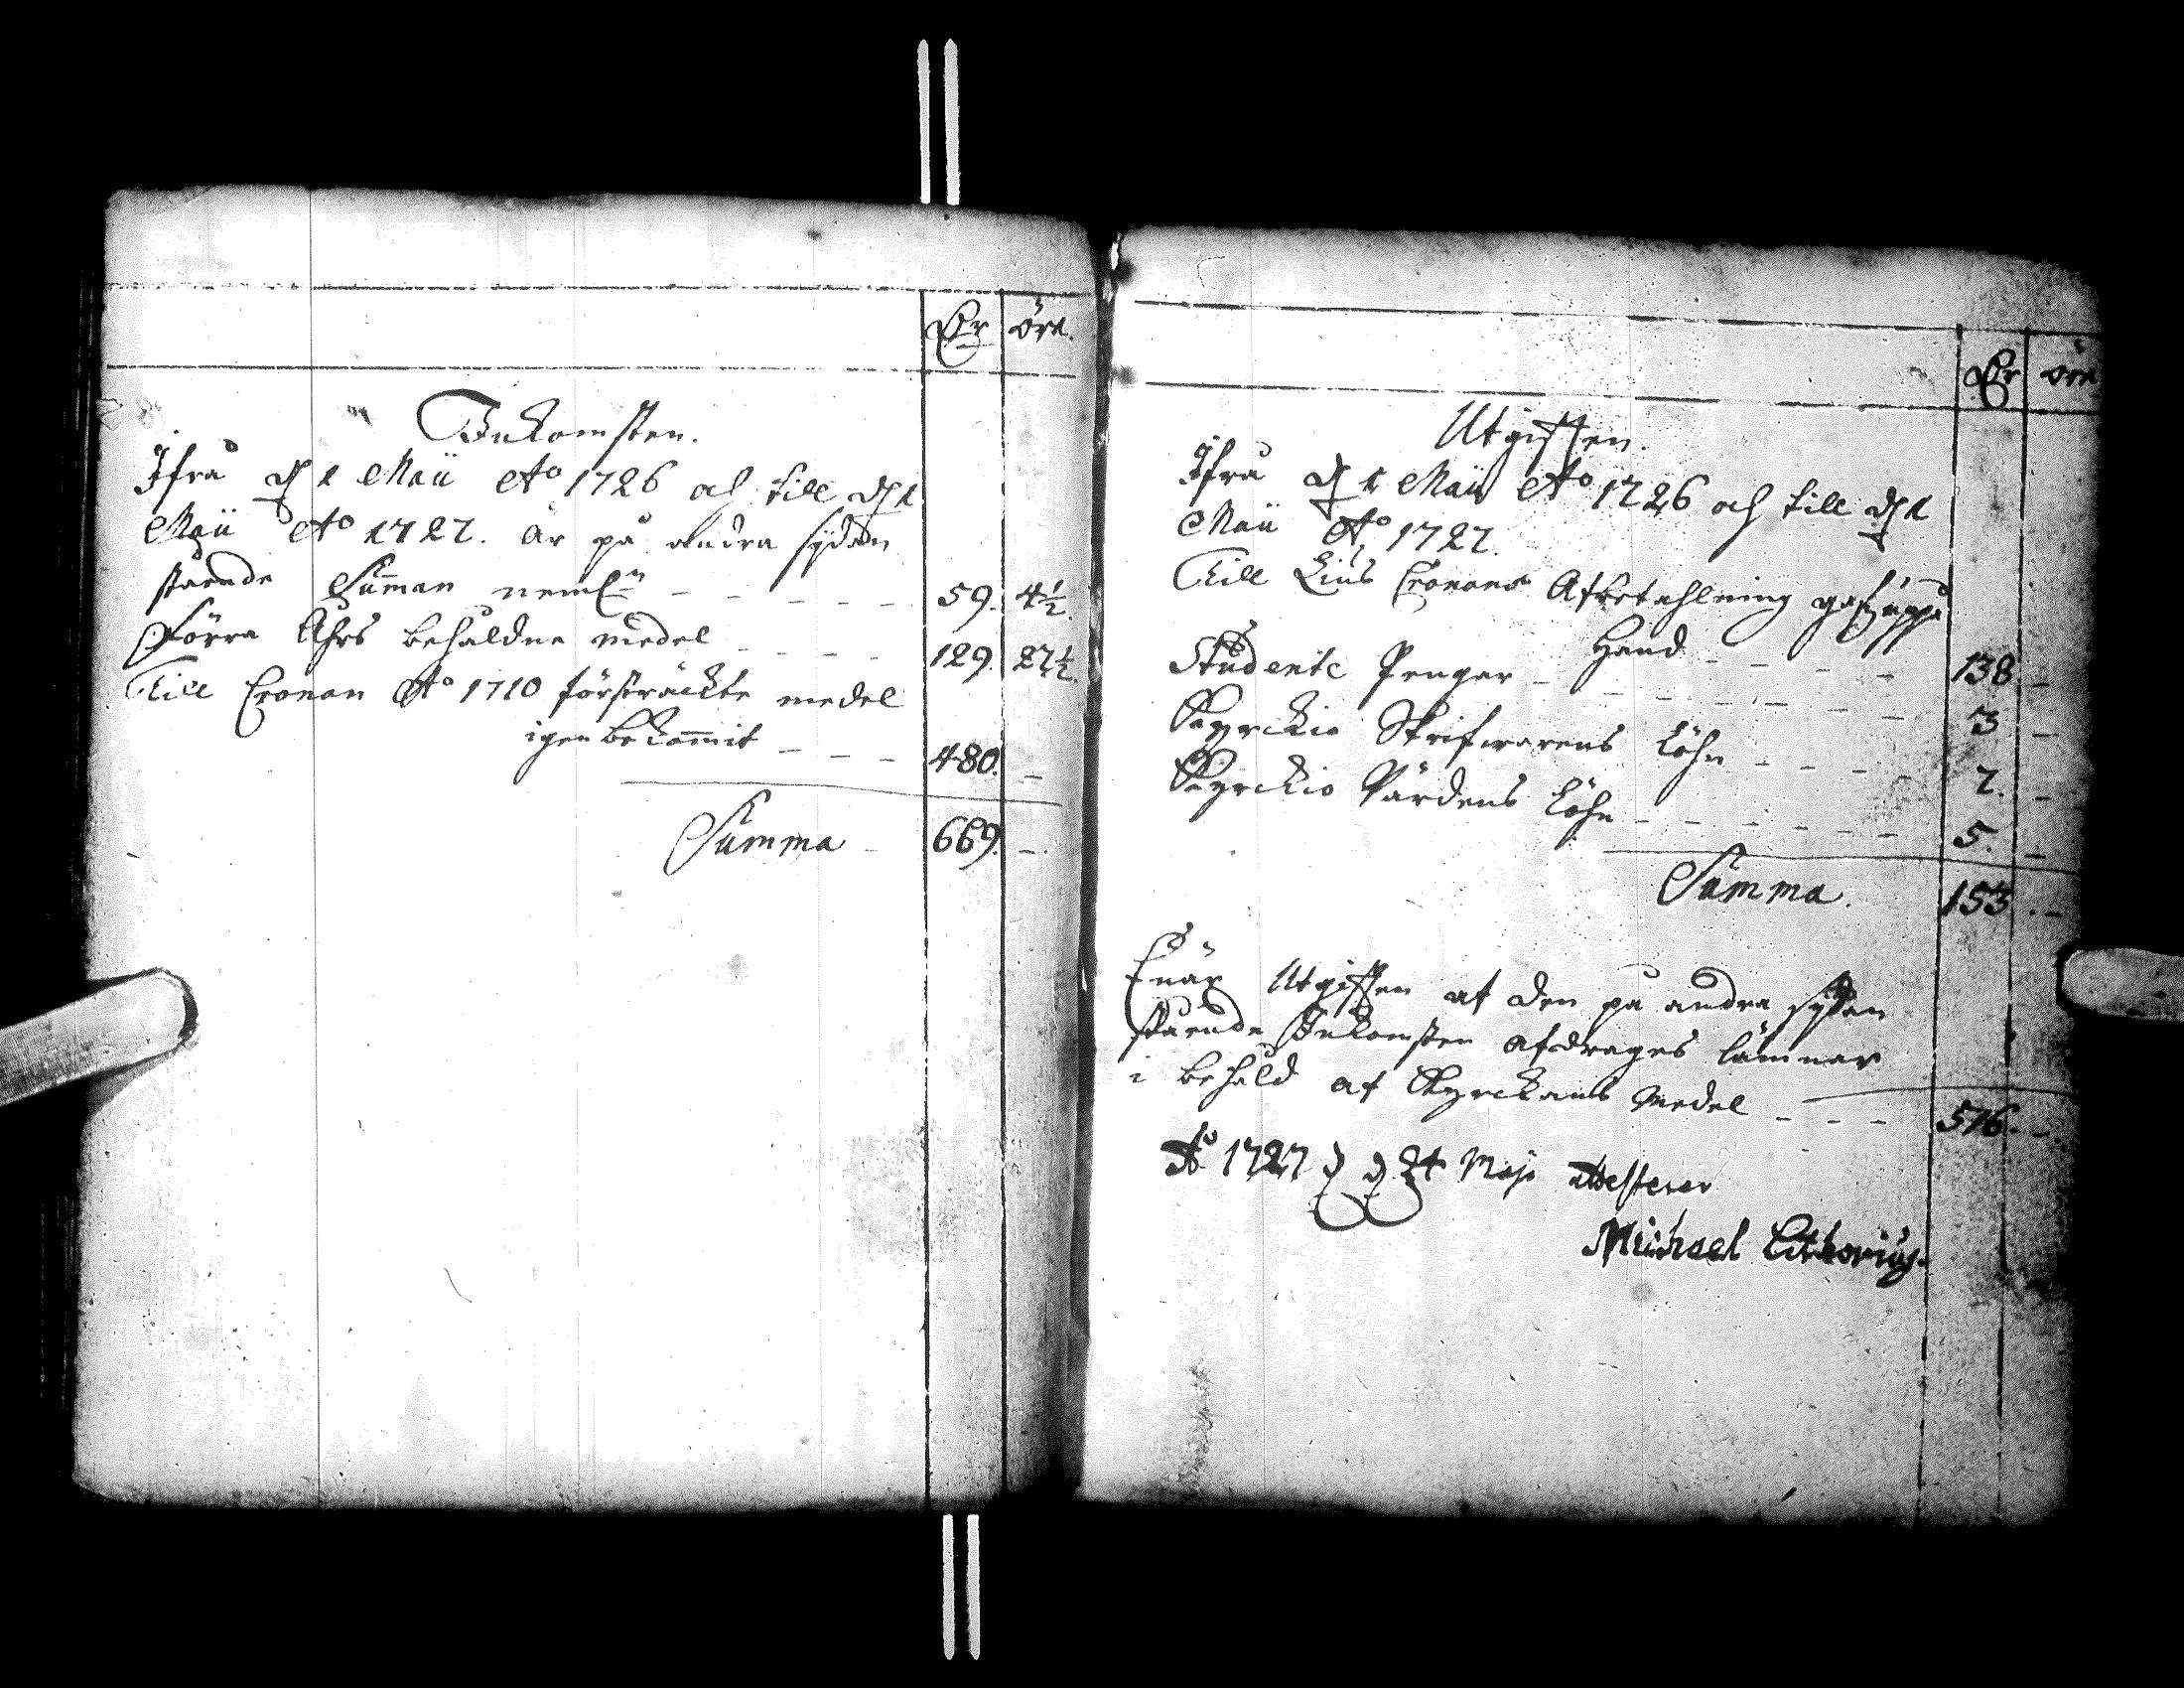 Dr öre.
Inkomsten.
Ifrå d 1 Maii Ao 1726 och till d 1
Maii Ao 1727. är på andra sydan
stående Summan neml. 59. 4½.
Förra Åhrs behåldne medel 129. 27½.
Till Cronan Ao 1710 försträckte medel
igen bekommit 480. -
Summa 669. -
Dr öre
Utgifften.
Ifrå d 1 Maii Ao 1726 och till d 1
Maii Ao 1727.
Till Cronans Afbetahlning
Hand 138 -
Studente Pengar 3 -
Kyrckio Skrifwarens Löhn 7. -
Kyrckio Värdens Löhn 5. -
Summa. 153. -
Enär Utgifften af den på andra sydan
stående Inkomsten afdrages lämnar
i behåld af Kyrckans Medel 516. -
Ao 1727 d 24 Maji attesterar
Michael